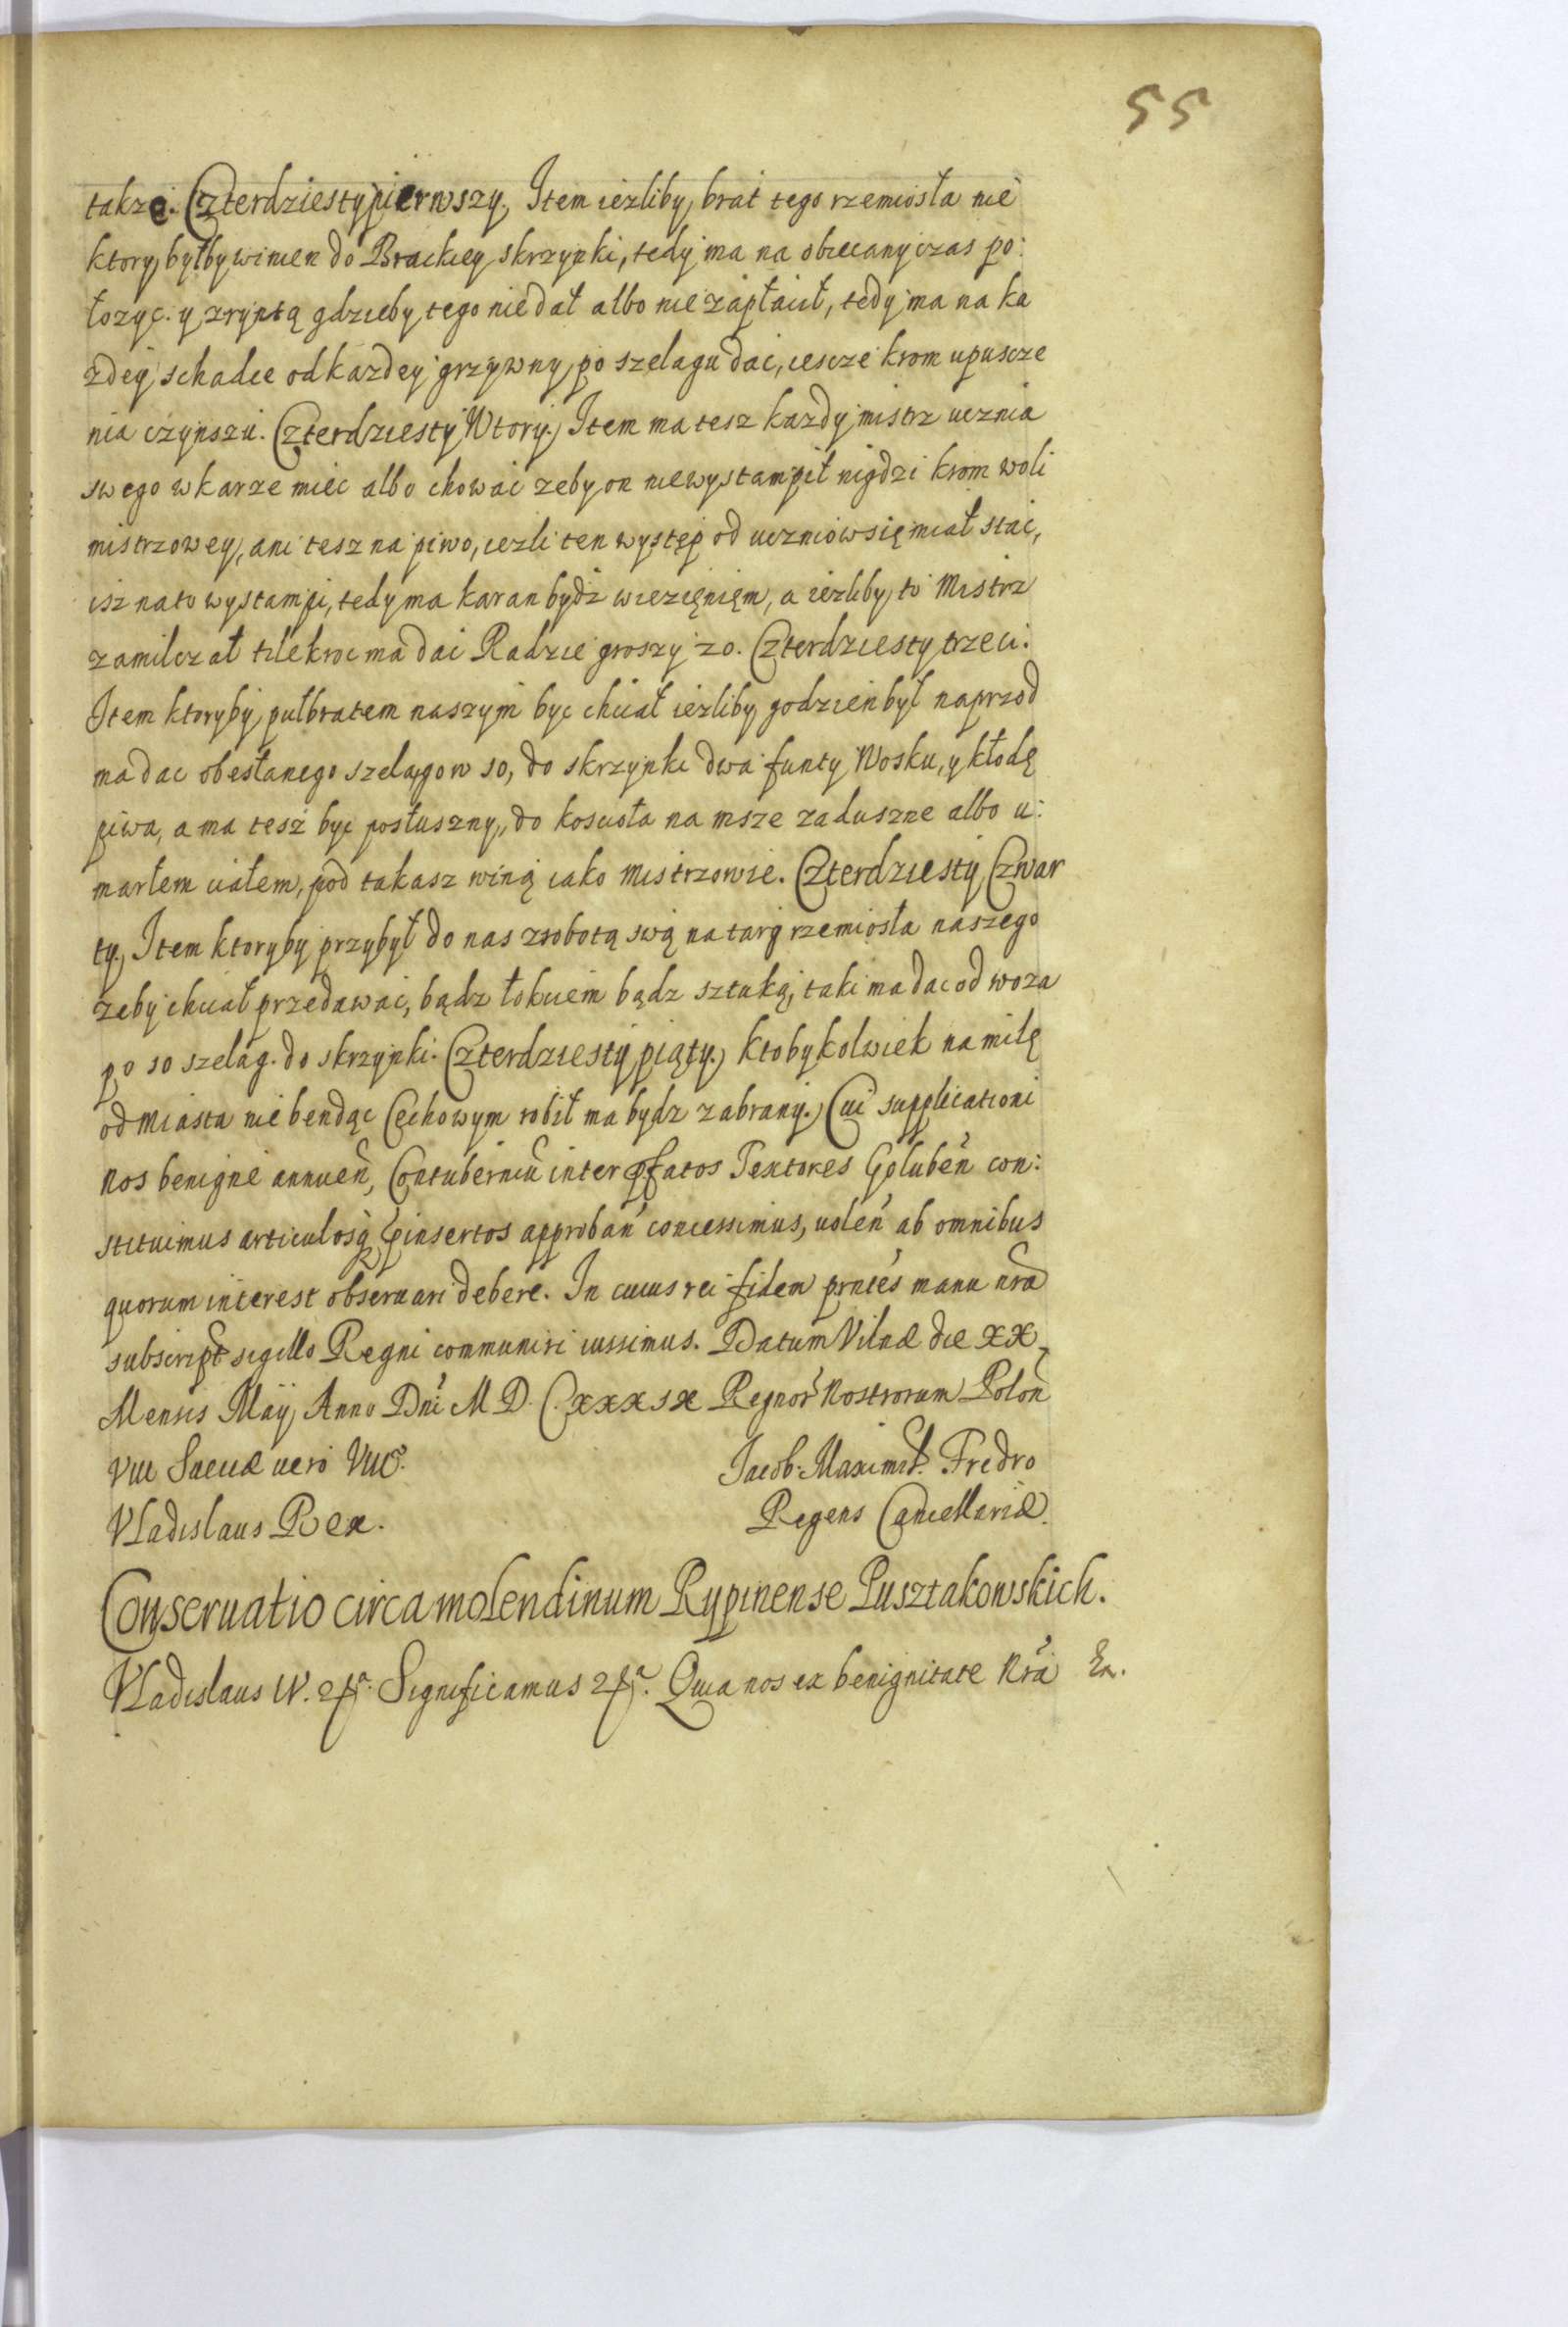 55
takze. Czterdziesty pierwszy. Item iezliby brat tego rzemiosła nie
ktory byłby winien do Brackiey skrzynki, tedy ma na obiecany czas po:
łozyc. y zryptą gdzieby tego nie dał albo nie zapłacił, tedy ma na ka
zdey schadce od kazdey grzywny po szelagu dac, iescze krom upuscze
nia czynszu. Czterdziesty Wtory. Item ma tesz kazdy mistrz ucznia
swego w karze miec albo chowac zeby on niewystampił nigdzi krom woli
mistrzowey, ani tesz na piwo, iezli ten występ od uczniow się miał stac,
isz nato wystampi, tedy ma karan bydz wiezięnięm, a iezliby to Mistrz
zamilczał tilekroc ma dac Radzie groszy 20. Czterdziesty trzeci.
Item ktoryby pułbratem naszym byc chciał iezliby godzien był naprzod
ma dac obesłanego szelągow 10, do skrzynki dwa funty Wosku, y kłodę
piwa, a ma tesz byc posłuszny, do koscioła na msze zaduszne albo u:
marłem ciałem, pod takasz winą iako Mistrzowie. Czterdziesty Czwar
ty. Item ktoryby przybył do nas zrobotą swą na targ rzemiosła naszego
zeby chciał przedawac, bądz łokciem bądz sztuką, taki ma dac od woza
po 10 szelag. do skrzynki. Czterdziesty piąty. ktobykolwiek na milę
od Miasta nie bendąc Cechowym robił ma bydz zabrany. Cui supplicationi
Nos benigne annuen̄, Contuberniū inter p̄fatos Textores Goluben̄ con:
stituimus articulosq̧ p̄insertos approban̄ concessimus, uolen̄ ab omnibus
quorum interest obseruari debere. In cuius rei fidem prn̄tes manu nr̄a
subscript sigillo Regni communiri iussimus. Datum Vilnæ die XX
Mensis Maÿ Anno Dn̄i M D. C. XXXIX Regnor̄ Nostrorum Polon̄
VII Sueciæ uero VIII.
Jacob. Maximil. Fredro
Vladislaus Rex.
Regens Cancellariæ.
Conseruatio circa molendinum Rypinense Pusztakowskich.
Vladislaus IV. etc. Significamus etc. Quia nos ex benignitate Nr̄a